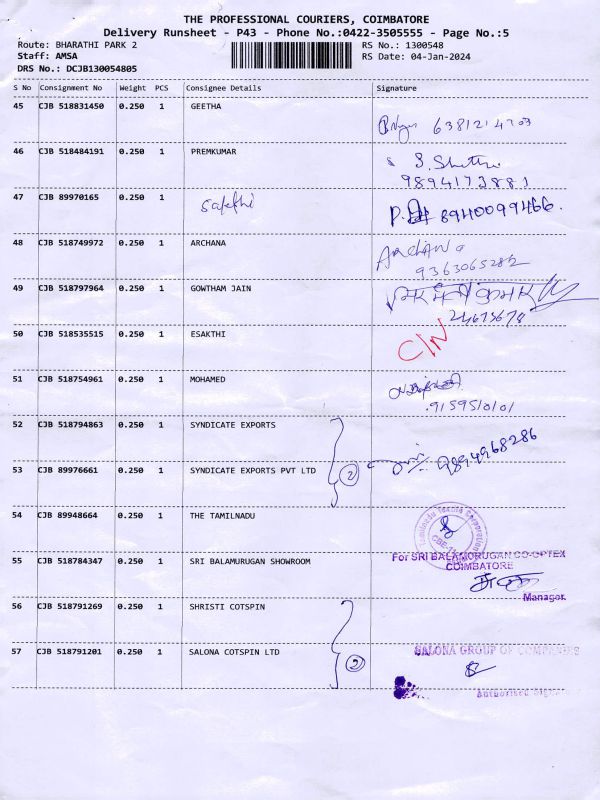 THE PROFESSIONAL COURIERS, COIMBATORE
Delivery Runsheet - P43 - Phone No.:0422-3505555 - Page No.:5
Route: BHARATHI PARK 2 RS No.: 1300548
Staff: AMSA RS Date: 04-Jan-2024
DRS No.: DCJB130054805
S No Consignment No Weight PCS Consignee Details Signature
45 CJB 518831450 0.250 1 GEETHA
6381214703
46 CJB 518484191 0.250 1 PREMKUMAR
9894173881
47 CJB 89970165 0.250 1 Sakthi 8940099466.
48 CJB 518749972 0.250 1 ARCHANA ARCHANA
9363065282
49 CJB 518797964 0.250 1 GOWTHAM JAIN
50 CJB 518535515 0.250 1 ESAKTHI C/N
51 CJB 518754961 0.250 1 MOHAMED
9159510101
52 CJB 518794863 0.250 1 SYNDICATE EXPORTS
2 9894968286
53 CJB 89976661 0.250 1 SYNDICATE EXPORTS PVT LTD
54 CJB 89948664 0.250 1 THE TAMILNADU
Tamilnadu Textile Corporation
CBE-11
55 CJB 518784347 0.250 1 SRI BALAMURUGAN SHOWROOM
For SRI BALAMORUGAN CO-OPTEX
COIMBATORE
Manager.
56 CJB 518791269 0.250 1 SHRISTI COTSPIN
57 CJB 518791201 0.250 1 SALONA COTSPIN LTD 2 SALONA GROUP OF COMPANIES
Authorised